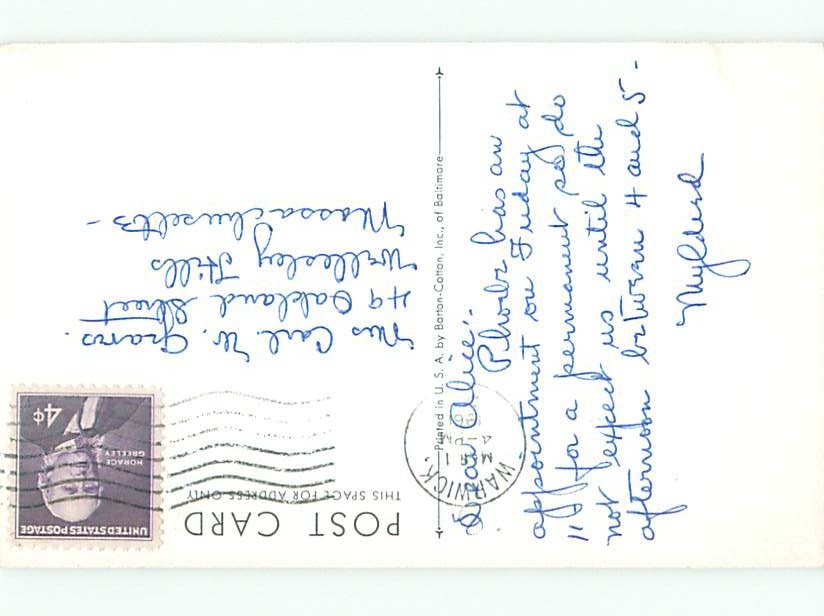 POST CARD
THIS SPACE FOR ADDRESS ONLY
UNITED STATES POSTAGE
HORACE
GREELEY
4¢
WARWICK,
JUN
Mrs Carl W.
49 Oakland Street
Wellesley Hills
Massachusetts -
Printed in U. S. A. by Barton-Cotton, Inc., of Baltimore
Dear Alice:-
Phoebe has an
appointment on Friday at
11 for a permanent so do
not expect us until the
afternoon between 4 and 5 -
Myldred